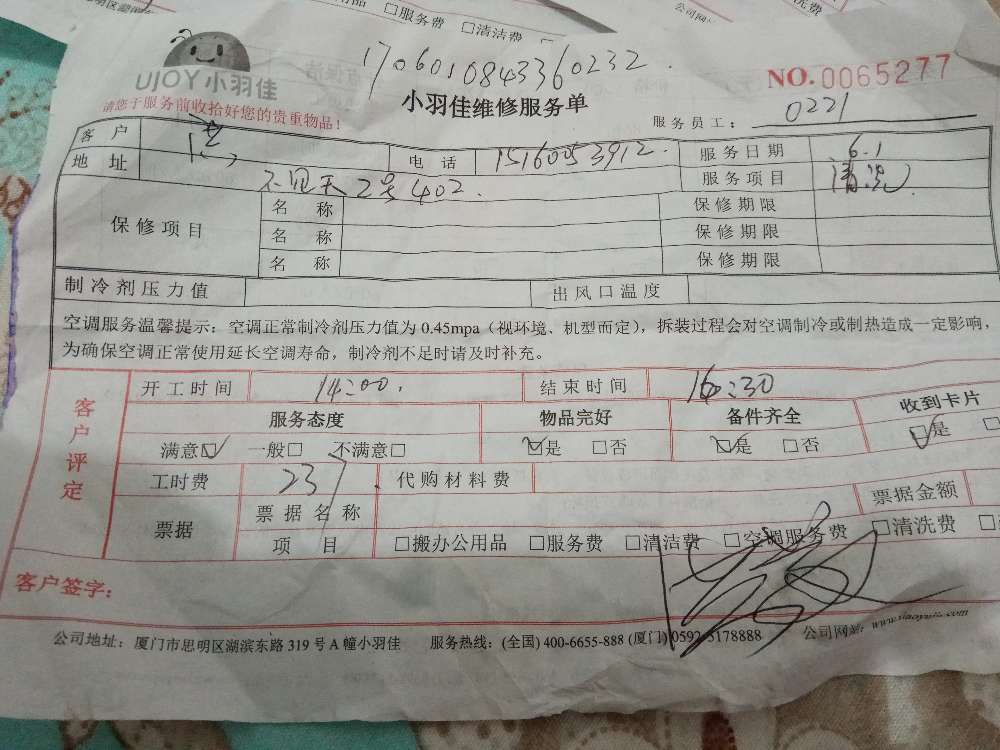 □服务费 □清洁费
公司网
1706010843360232
UJOY小羽佳
NO.0065277
请您于服务前收拾好您的贵重物品!
小羽佳维修服务单
服务员工: 0221
客户 电话 15160053912 服务日期 6.1
地址 不见天2号402 服务项目 清洗
保修项目 名称 保修期限
名称 保修期限
名称 保修期限
制冷剂压力值 出风口温度
空调服务温馨提示:空调正常制冷剂压力值为0.45mpa(视环境、机型而定),拆装过程会对空调制冷或制热造成一定影响,
为确保空调正常使用延长空调寿命,制冷剂不足时请及时补充。
客户评定
开工时间 14:00. 结束时间 16:30
服务态度 物品完好 备件齐全 收到卡片
满意☑ 一般□ 不满意□ ☑是 □否 ☑是 □否 ☑是 □
工时费 237. 代购材料费
票据 票据名称 票据金额
项目 □搬办公用品 □服务费 □清洁费 □空调服务费 □清洗费 □
客户签字:
公司地址:厦门市思明区湖滨东路319号A幢小羽佳 服务热线:(全国)400-6655-888 (厦门)0592-5178888 公司网站:www.xiaoyujia.com